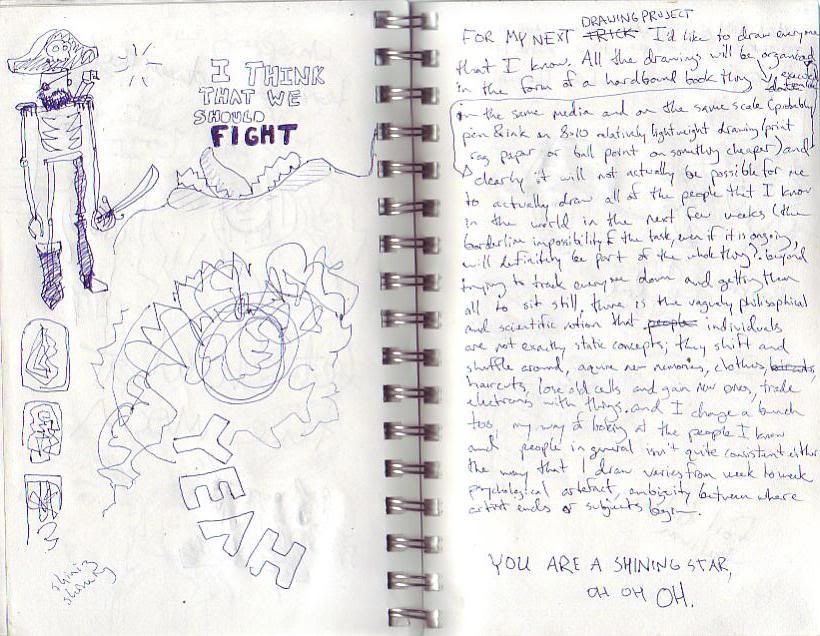 I THINK
THAT WE
SHOULD
FIGHT
YEAH
DRAWING PROJECT
FOR MY NEXT TRICK I'd like to draw everyone
that I know. All the drawings will be organized,
in the form of a hardbound book thing
executed
in the same media and on the same scale (probably
pen & ink on 8x10 relatively lightweight drawing/print
rag paper or ball point on something cheaper) and
clearly it will not actually be possible for me
to actually draw all of the people that I know
in the world in the next few weeks (the
borderline impossibility of the task, even if it is ongoing,
will definitely be part of the whole thing). beyond
trying to track everyone down and getting them
all to sit still, there is the vaguely philosophical
and scientific notion that people individuals
are not exactly static concepts; they shift and
shuffle around, aquire new memories, clothes, haircuts,
haircuts, lose old cells and gain new ones, trade
electrons with things. and I change a bunch
too, my way of looking at the people I know
and people in general isn't quite consistent either
the way that I draw varies from week to week
psychological artefact, ambiguity between where
artist ends or subjects begin.
YOU ARE A SHINING STAR,
OH OH OH.